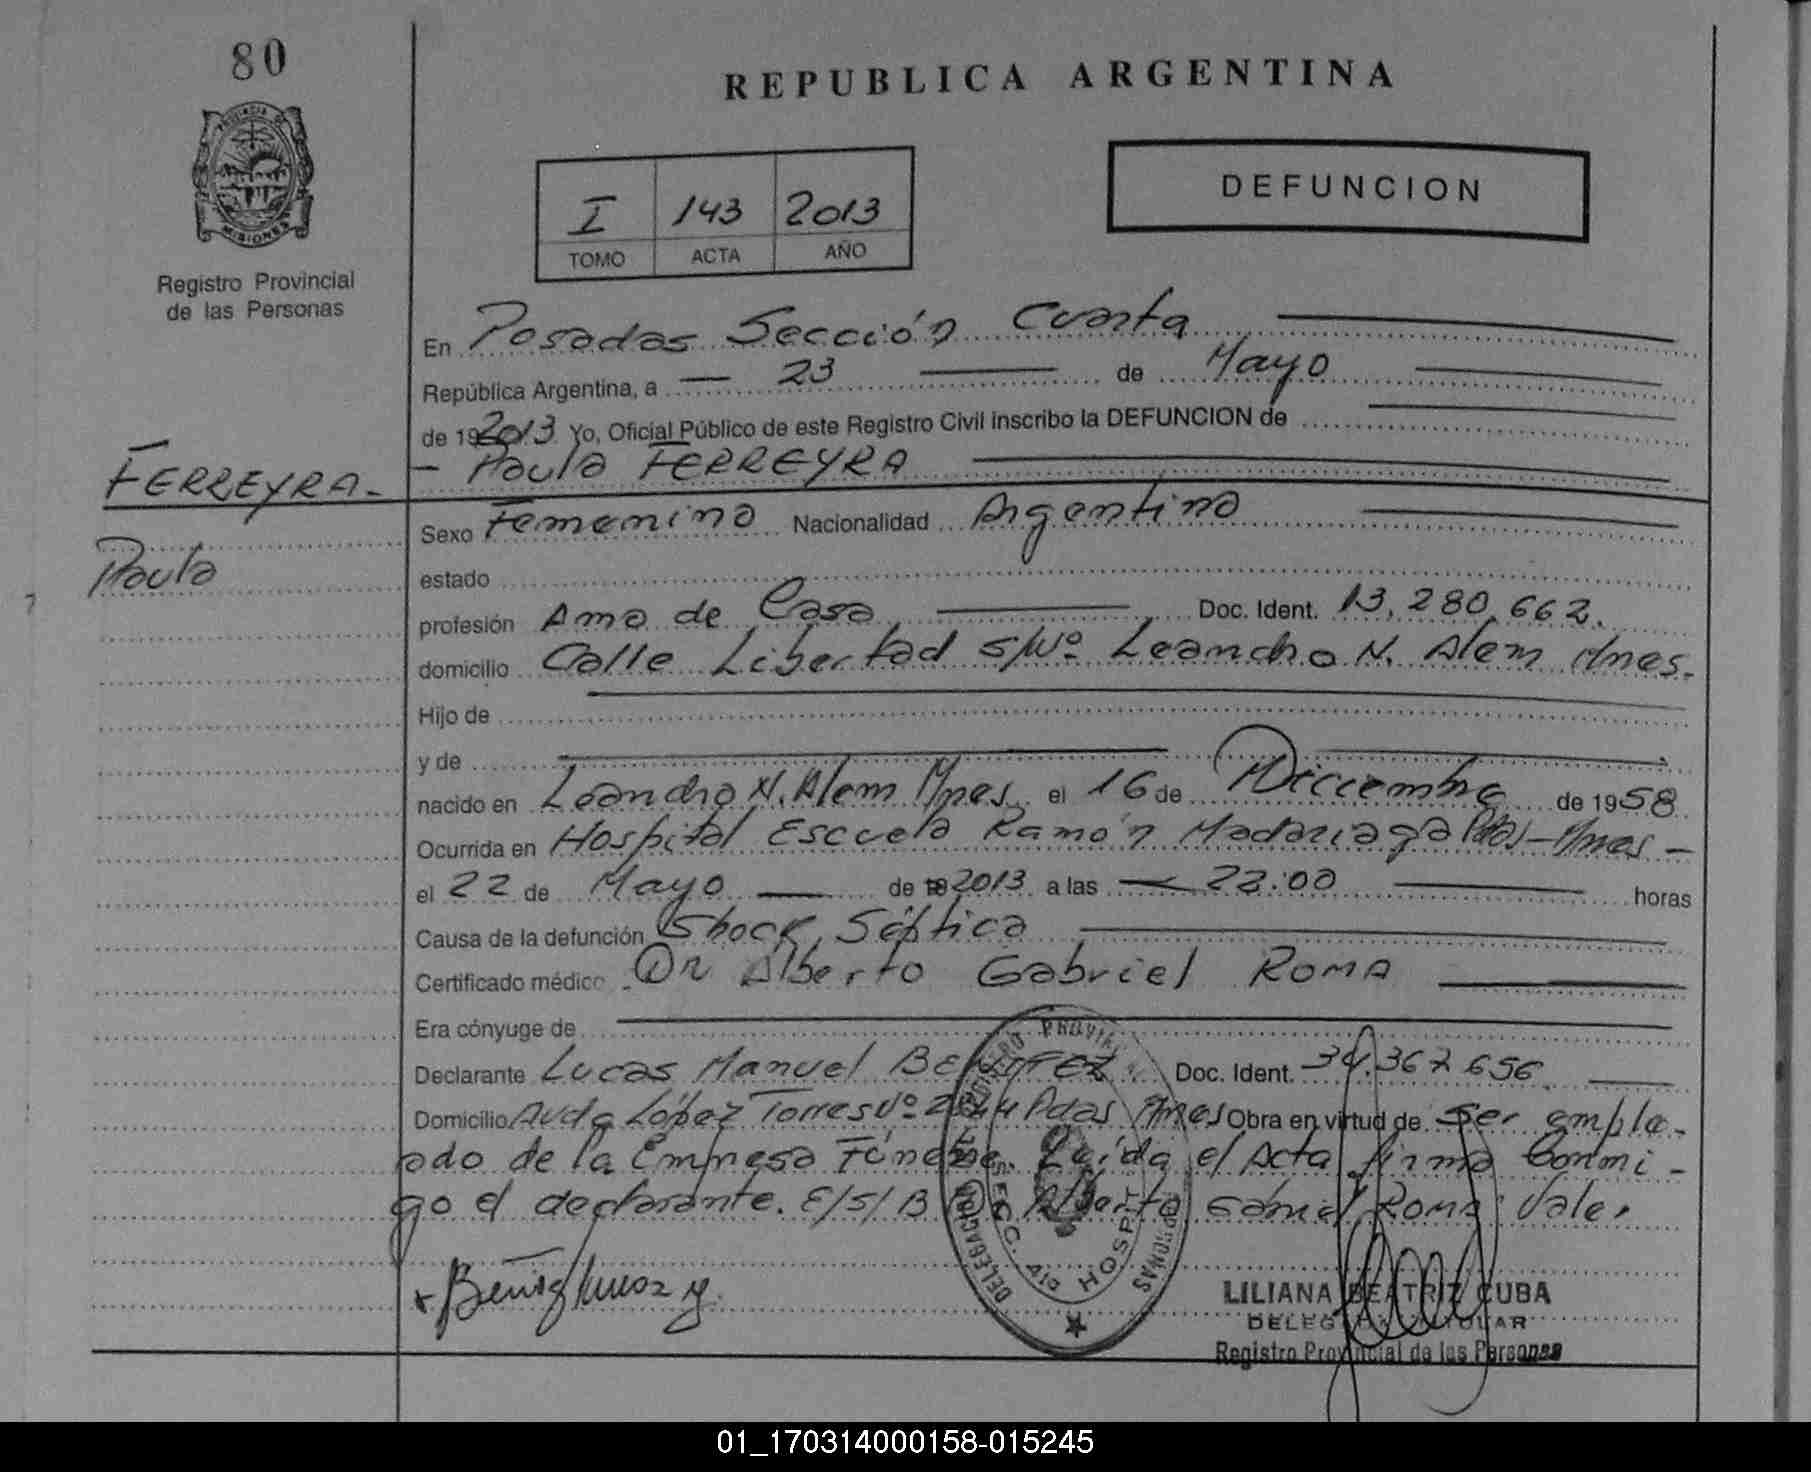 80
REPUBLICA ARGENTINA
PROVINCIA DE
MISIONES
Registro Provincial
de las Personas
I 143 2013
TOMO ACTA AÑO
DEFUNCION
En Posadas Sección Cuarta
República Argentina, a 23 de Mayo
de 19 2013 Yo, Oficial Público de este Registro Civil inscribo la DEFUNCION de
FERREYRA.
- Paula FERREYRA
Paula
Sexo Femenino Nacionalidad Argentina
estado
profesión Ama de Casa Doc. Ident. 13,280,662.
domicilio Calle Libertad S/Nº Leandro N. Alem Mnes.
Hijo de
y de
nacido en Leandro N. Alem Mnes. el 16 de Diciembre de 1958
Ocurrida en Hospital Escuela Ramón Madariaga Pdas-Mnes-
el 22 de Mayo de 2013 a las 22:00 horas
Causa de la defunción Shock Séptico
Certificado médico Dr Alberto Gabriel ROMA
Era cónyuge de
Declarante Lucas Manuel BENITEZ Doc. Ident. 34.367.656
Domicilio Avda López Torres Nº Pdas Mnes Obra en virtud de ser emple-
ado de la Empresa Fúnebre. Leída el Acta firma Conmi-
go el declarante. E/S/B Dr Alberto Gabriel ROMA: Vale.
DELEGACION SECC. 4ta HOSPIT
LILIANA BEATRIZ CUBA
DELEGADA TITULAR
Registro Provincial de las Personas
01_170314000158-015245